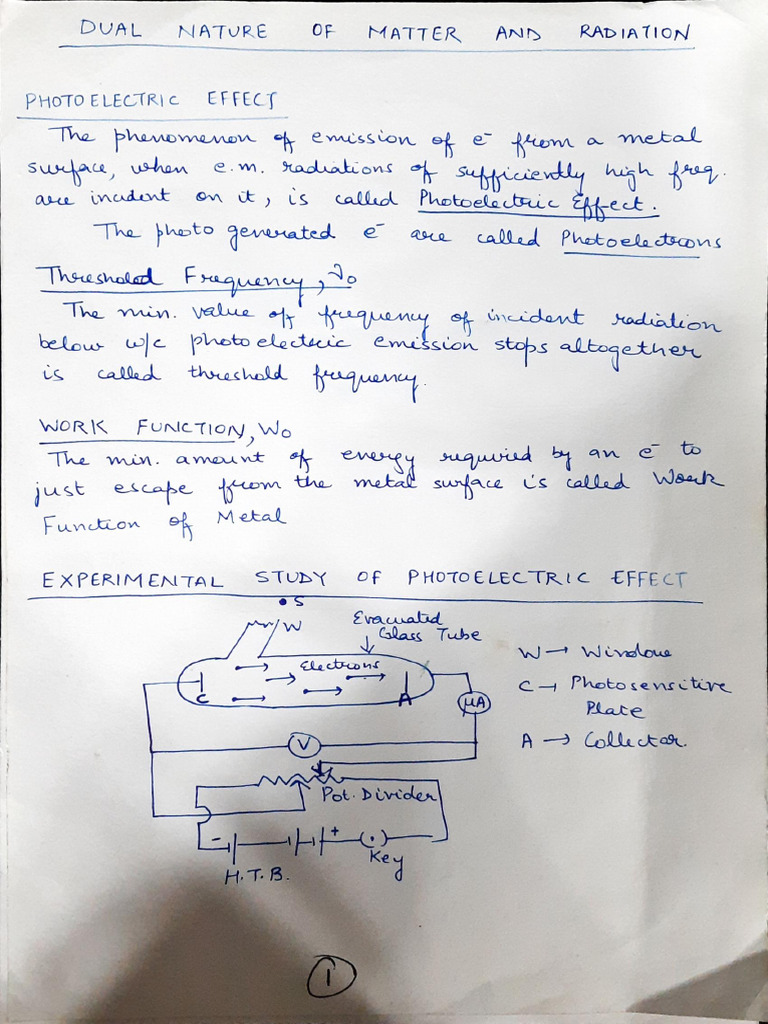 DUAL NATURE OF MATTER AND RADIATION
PHOTOELECTRIC EFFECT
The phenomenon of emission of e⁻ from a metal
surface, when e.m. radiations of sufficiently high freq.
are incident on it, is called Photoelectric Effect.
The photo generated e⁻ are called Photoelectrons
Threshold Frequency, ν₀
The min. value of frequency of incident radiation
below w/c photoelectric emission stops altogether
is called threshold frequency.
WORK FUNCTION, W₀
The min. amount of energy required by an e⁻ to
just escape from the metal surface is called Work
Function of Metal
EXPERIMENTAL STUDY OF PHOTOELECTRIC EFFECT
S
W
Evacuated
Glass Tube
Electrons
C
A
μA
W → Window
C → Photosensitive
Plate
A → Collector.
V
Pot. Divider
- +
Key
H.T.B.
1